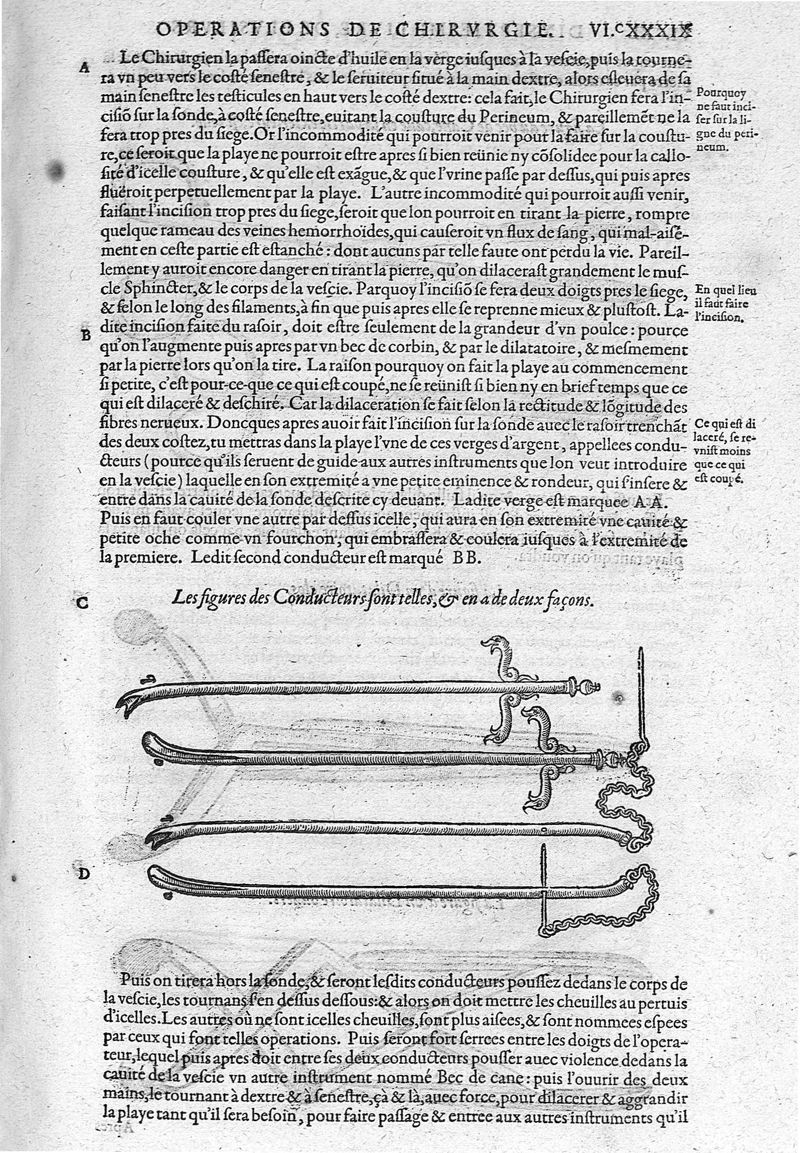 OPERATIONS DE CHIRVRGIE. VI.ᶜXXXIX
A
Le Chirurgien la paſſera oincte d'huile en la verge iuſques à la veſcie, puis la tourne-
ra vn peu vers le coſté ſeneſtre, & le ſeruiteur ſitué à la main dextre, alors eſleuera de ſa
main ſeneſtre les teſticules en haut vers le coſté dextre: cela fait, le Chirurgien fera l'in-
ciſiõ ſur la ſonde, à coſté ſeneſtre, euitant la couſture du Perineum, & pareillemẽt ne la
fera trop pres du ſiege. Or l'incommodité qui pourroit venir pour la faire ſur la couſtu-
re, ce ſeroit que la playe ne pourroit eſtre apres ſi bien reünie ny cõſolidee pour la callo-
ſité d'icelle couſture, & qu'elle eſt exãgue, & que l'vrine paſſe par deſſus, qui puis apres
flueroit perpetuellement par la playe. L'autre incommodité qui pourroit auſſi venir,
faiſant l'inciſion trop pres du ſiege, ſeroit que lon pourroit en tirant la pierre, rompre
quelque rameau des veines hemorrhoïdes, qui cauſeroit vn flux de ſang, qui mal-aiſé-
ment en ceſte partie eſt eſtanché: dont aucuns par telle faute ont perdu la vie. Pareil-
lement y auroit encore danger en tirant la pierre, qu'on dilaceraſt grandement le muſ-
cle Sphincter, & le corps de la veſcie. Parquoy l'inciſiõ ſe fera deux doigts pres le ſiege,
& ſelon le long des filaments, à fin que puis apres elle ſe reprenne mieux & pluſtoſt. La-
dite inciſion faite du raſoir, doit eſtre ſeulement de la grandeur d'vn poulce: pource
qu'on l'augmente puis apres par vn bec de corbin, & par le dilatatoire, & meſmement
par la pierre lors qu'on la tire. La raiſon pourquoy on fait la playe au commencement
ſi petite, c'eſt pour-ce-que ce qui eſt coupé, ne ſe reüniſt ſi bien ny en brief temps que ce
qui eſt dilaceré & deſchiré. Car la dilaceration ſe fait ſelon la rectitude & lõgitude des
fibres nerueux. Doncques apres auoir fait l'inciſion ſur la ſonde auec le raſoir trenchãt
des deux coſtez, tu mettras dans la playe l'vne de ces verges d'argent, appellees condu-
cteurs (pource qu'ils ſeruent de guide aux autres inſtruments que lon veut introduire
en la veſcie) laquelle en ſon extremité a vne petite eminence & rondeur, qui ſ'inſere &
entre dans la cauité de la ſonde deſcrite cy deuant. Ladite verge eſt marquee A A.
Puis en faut couler vne autre par deſſus icelle, qui aura en ſon extremité vne cauité &
petite oche comme vn fourchon, qui embraſſera & coulera iuſques à l'extremité de
la premiere. Ledit ſecond conducteur eſt marqué B B.
Pourquoy
ne faut inci-
ſer ſur la li-
gne du peri-
neum.
En quel lieu
il faut faire
l'inciſion.
B
Ce qui eſt di
laceré, ſe re-
vniſt moins
que ce qui
eſt coupé.
C
Les figures des Conducteurs ſont telles, & en a de deux façons.
D
Puis on tirera hors la ſonde, & ſeront leſdits conducteurs pouſſez dedans le corps de
la veſcie, les tournans ſ'en deſſus deſſous: & alors on doit mettre les cheuilles au pertuis
d'icelles. Les autres où ne ſont icelles cheuilles, ſont plus aiſees, & ſont nommees eſpees
par ceux qui font telles operations. Puis ſeront fort ſerrees entre les doigts de l'opera-
teur, lequel puis apres doit entre ſes deux conducteurs pouſſer auec violence dedans la
cauité de la veſcie vn autre inſtrument nommé Bec de cane: puis l'ouurir des deux
mains, le tournant à dextre & à ſeneſtre, çà & là, auec force, pour dilacerer & aggrandir
la playe tant qu'il ſera beſoin, pour faire paſſage & entree aux autres inſtruments qu'il